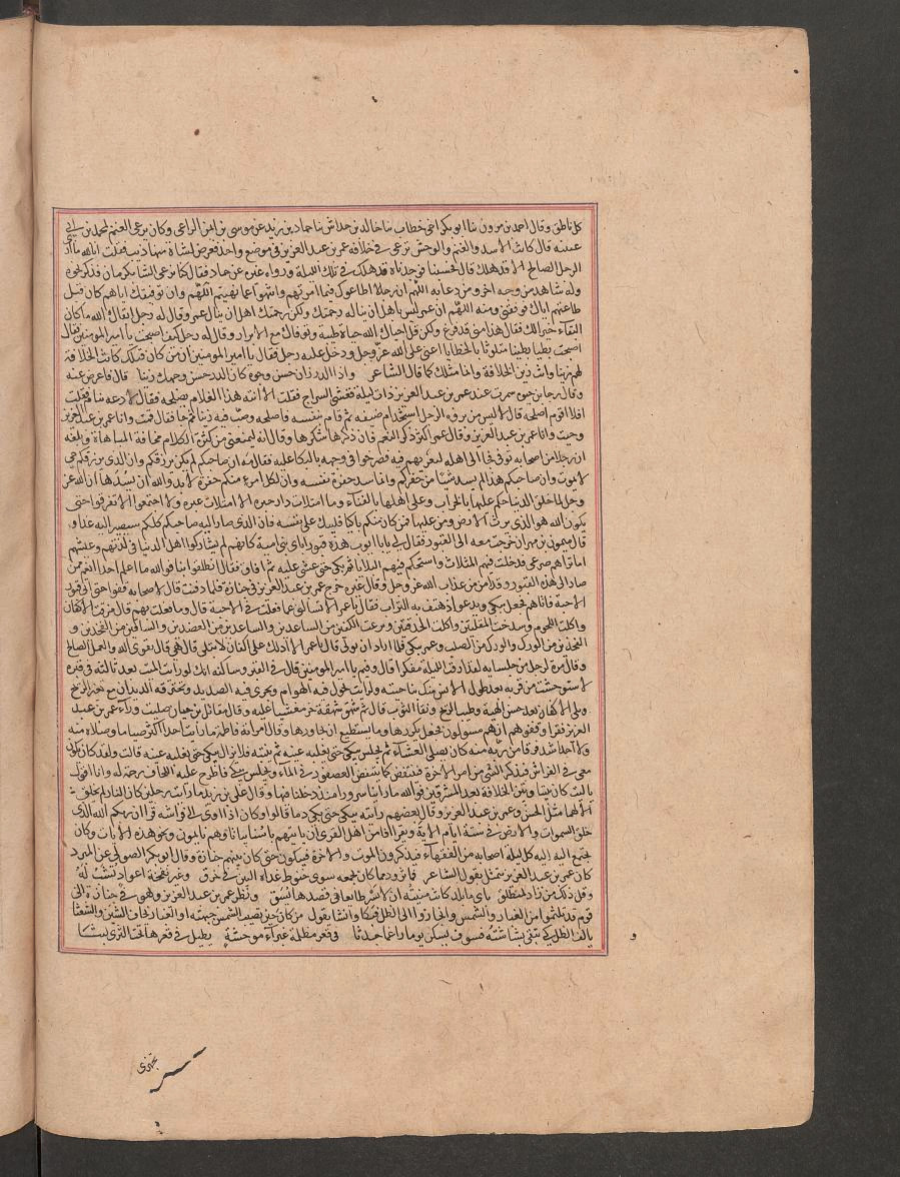 كل ناطق وقال احمد بن مروان نا ابو بكر اخي خطاب نا خالد بن خداش نا حماد بن زيد عن موسى بن ايمن الراعي وكان يرعى الغنم لمحمد بن ابي
عيينة قال كانت الاسد والغنم والوحش ترعى في خلافة عمر بن عبد العزيز في موضع واحد فعرض لشاة منها ذيب فقلت انا لله ما أرى
الرجل الصالح الا قد هلك قال فحسبنا فوجدناه قد هلك في تلك الليلة ورواه غيره عن حماد فقال كان يرعى الشا بكرمان فذكر نحوه
وله شاهد من وجه اخر ومن دعايه اللهم ان رجالا اطاعوك فيما امرتهم وانتهوا عما نهيتهم اللهم وان توفيقك اياهم كان قبل
طاعتهم اياك فوفقني ومنه اللهم ان عمر ليس باهل ان تناله رحمتك ولكن رحمتك اهل ان تنال عمر وقال له رجل ابقاك الله ما كان
البقاء خيرا لك فقال هذا شي قد فرغ ولكن قل احياك الله حياة طيبة وتوفاك مع الابرار وقال له رجل كيف اصبحت يا امير المومنين فقال
اصبحت بطيا بطينا متلوثا بالخطايا اتمنى على الله عز وجل ودخل عليه رجل فقال يا امير المومنين ان من كان قبلك كانت الخلافة
لهم زينا وانت زين الخلافة وانما مثلك كما قال الشاعر واذا الدر زان حسن وجوه كان للدر حسن وجهك زينا قال فاعرض عنه
وقال رجا بن حيوة سمرت عند عمر بن عبد العزيز ذات ليلة فعشى السراج فقلت الا أنبه هذا الغلام يصلحه فقال لا دعه ينام فقلت
افلا اقوم اصلحه قال لا ليس من مروة الرجل استخدام ضيفه ثم قام بنفسه فاصلحه وصب فيه زيتا ثم جا فقال قمت وانا عمر بن عبد العزيز
وجيت وانا عمر بن عبد العزيز وقال عمر اكثروا ذكر النعم فان ذكرها شكرها وقال انه ليمنعني من كثرة الكلام مخافة المباهاة وبلغه
ان رجلا من اصحابه توفي فجا الى اهله ليعزيهم فيه فصرخوا في وجهه بالبكا عليه فقال مه ان صاحبكم لم يكن يرزقكم وان الذي يرزقكم حي
لا يموت وان صاحبكم هذا لم يسد شيئا من حفركم وانما سد حفرة نفسه وان لكل امرئ منكم حفرة لا بد والله ان يسدها ان الله عز
وجل لما خلق الدنيا حكم عليها بالخراب وعلى اهلها بالفناء وما امتلات دار حبرة الا امتلات عبرة ولا اجتمعوا الا تفرقوا حتى
يكون الله هو الذي يرث الارض ومن عليها فمن كان منكم باكيا فليبك على نفسه فان الذي صار اليه صاحبكم كلكم سيصير اليه غدا و
قال ميمون بن مهران خرجت معه الى القبور فقال لي يا با ايوب هذه قبور اباي بني امية كانهم لم يشاركوا اهل الدنيا في لذتهم وعيشهم
اما تراهم صرعى قد خلت فيهم المثلات واستحكم فيهم البلا ثم بكى حتى غشي عليه ثم افاق فقال انطلقوا بنا فوالله ما اعلم احدا انعم ممن
صار الى هذه القبور وقد امن من عذاب الله عز وجل وقال غيره خرج عمر بن عبد العزيز في جنازة فلما دفنت قال لاصحابه قفوا حتى اتي قبور
الاحبة فاتاهم فجعل يبكي ويدعوا اذ هتف به التراب فقال يا عمر الا تسالني عما فعلت في الاحبة قال وما فعلت بهم قال مزقت الاكفان
واكلت اللحوم وشدخت المقلتين واكلت الحدقتين ونزعت الكفين من الساعدين والساعدين من العضدين والساقين من الفخدين و
الفخذين من الورك والورك من الصلب وعمر يبكي فلما اراد ان يولي قال يا عمر الا ادلك على اكفان لا تبلى قال وما هي قال تقوى الله والعمل الصالح
وقال مرة لرجل من جلسايه لقد ارقت الليلة مفكرا قال وفيم يا امير المومنين قال في القبر وساكنه انك لو رايت الميت بعد ثالثة في قبره
لاستوحشت من قربه بعد طول الانس منك بناحيته ولرايت بيتا تجول فيه الهوام ويجري فيه الصديد وتخترقه الديدان مع تغير الريح
وبلى الاكفان بعد حسن الهيئة وطيب الريح ونقا الثوب قال ثم شهق شهقة خر مغشيا عليه وقال مقاتل بن حيان صليت وراء عمر بن عبد
العزيز فقرا وقفوهم انهم مسولون فجعل يكررها وما يستطيع ان يجاوزها وقالت امراته فاطمة ما رايت احدا اكثر صياما وصلاة منه
ولا احدا اشد فرقا من ربه منه كان يصلي العشاء ثم يجلس يبكي حتى تغلبه عينه ثم ينتبه فلا يزال يبكي حتى تغلبه عينه قالت ولقد كان يكون
معي في الفراش فيذكر الشي من امر الاخرة فينتفض كما ينتفض العصفور في الماء ويجلس يبكي فاطرح عليه اللحاف رحمة له وانا اقول
يا ليت كان بيننا وبين الخلافة بعد المشرقين فوالله ما راينا سرورا منذ دخلنا فيها وقال علي بن زيد ما رايت رجلين كان النار لم تخلق
الا لهما مثل الحسن وعمر بن عبد العزيز وقال بعضهم رأيته يبكي حتى بكى دما قالوا وكان اذا اوى الى فراشه قرا ان ربكم الله الذي
خلق السموات والارض في ستة ايام الاية ويقرا افامن اهل القرى ان ياتيهم باسنا بياتا وهم نايمون ونحو هذه الايات وكان
يجتمع اليه كل ليلة اصحابه من الفقهاء فيذكرون الموت والاخرة فيبكون حتى كان بينهم جنازة وقال ابو بكر الصولي عن المبرد
كان عمر بن عبد العزيز يتمثل بقول الشاعر فما تزود مما كان يجمعه سوى حنوط غداة البين في خرق وغير نفحة اعواد تشب له
وقل ذلك من زاد لمنطلق باي ما بلد كانت منيته ان لا يسر طايعا في قصدها يسق ونظر عمر بن عبد العزيز وهو في جنازة الى
قوم قد تلثموا من الغبار والشمس وانحازوا الى الظل فبكا وانشا يقول من كان حين تصيب الشمس جبهته او الغبار يخاف الشين والشعثا
يالف الظل كي تبقى بشاشته فسوف يسكن يوما راغما جدثا في قعر مظلة غبراء موحشة يطيل في قعرها تحت الثرى لبثا
تجهزي